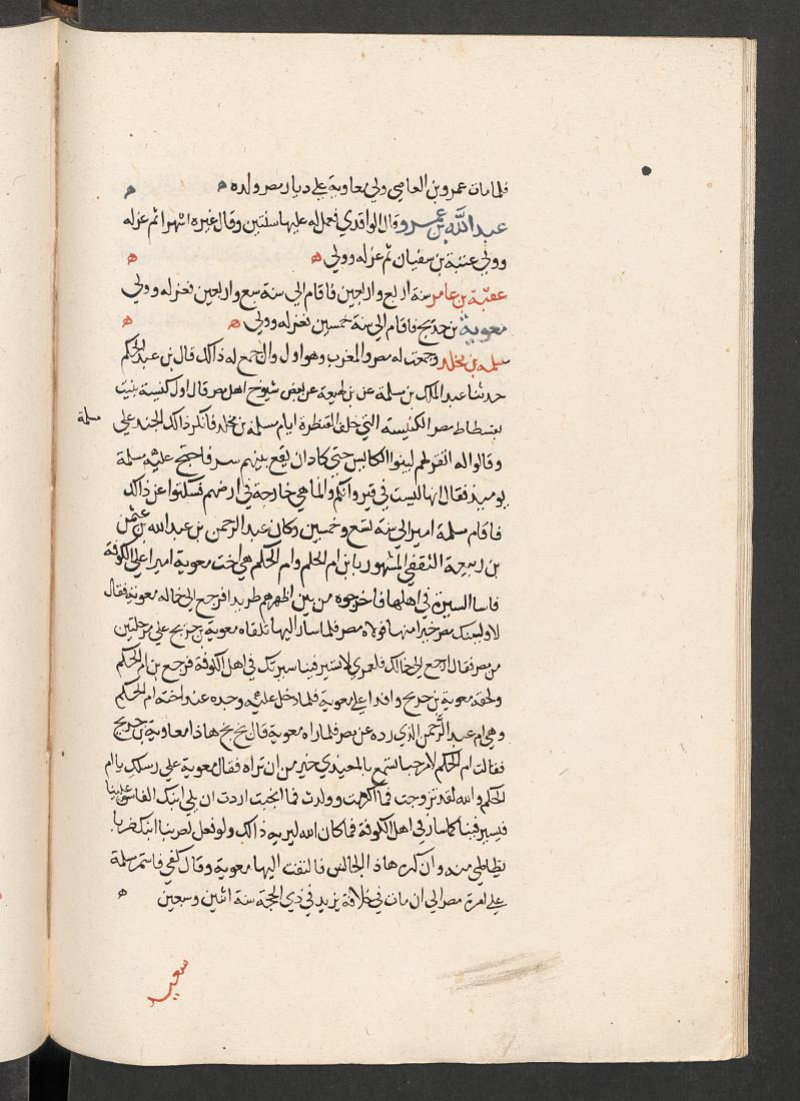 فلما مات عمرو بن العاصي ولي معاوية علي ديار مصر ولده
عبد الله بن عمرو وقال الواقدي فعمل له عليها سنتين وقال غيره اشهرا ثم عزله
وولي عتبة بن سفيان ثم عزله وولي
عقبة بن عامر سنة اربع واربعين فاقام الي سنة سبع واربعين فعزله وولي
معوية بن حديج فاقام الي سنة خمسين فعزله وولي
مسلمه بن مخلد وجمعت له مصر والمغرب وهو اول وال جمع له ذالك قال بن عبد الحكم
حدثنا عبد الملك بن مسلمة عن بن لهيعة عن بعض شيوخ اهل مصر قال اول كنيسة بنيت
بفسطاط مصر الكنيسة التي خلف القنطرة ايام مسلمه بن مخلد فانكر ذالك الجند علي
مسلمة
وقالوا له اتقر لهم ليبنوا الكنايس حتي كاد ان يقع بينهم شر فاحتج عليهم مسلمة
يوميذ فقال انها ليست في قيروانكم وانما هي خارجة في ارضهم فسكتوا عن ذالك
فاقام مسلمة اميرا الي سنة تسع وخمسين وكان عبد الرحمن بن عبد الله بن عثمن
بن ربيعة الثقفي المشهور بابن ام الحكم وام الحكم هي اخت معوية اميرا علي الكوفة
فاسا السيرة في اهلها فاخرجوه من بين اظهرهم طريدا فرجع الي خاله معوية فقال
لاولينك مصر خيرا منها فولاه مصر فلما سار اليها تلقاه معوية بن حديج علي مرحلتين
من مصر فقال ارجع الي خالك فلعمري لا تسير فينا سيرتك في اهل الكوفة فرجع بن ام الحكم
ولحقه معوية بن حديج وافدا علي معوية فلما دخل عليه وجده عند اخته ام الحكم
وهي ام عبد الرحمن الذي رده عن مصر فلما راه معوية قال بخ بخ هاذا معاوية بن حديج
فقالت ام الحكم لا مرحبا تسمع بالمعيدي خير من ان تراه فقال معوية علي رسلك يا ام
الحكم والله لقد تزوجت فما اكرمت وولدت فما انجبت اردت ان يلي ابنك الفاسق علينا
فيسير فينا كما سار في اهل الكوفة فما كان الله ليريه ذالك ولو فعل لضربنا ابنك ضربا
يطاطي منه وان كره هاذا الجالس فالتفت اليها معوية وقال كفي فاستمر مسلمة
علي امرة مصر الي ان مات في خلافة يزيد في ذي الحجة سنة اثنين وسبعين
سعيد